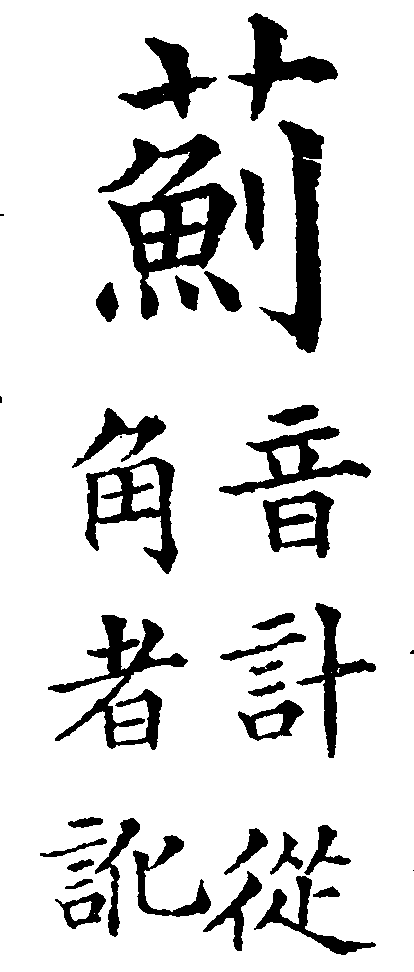 薊
音計從
角者訛